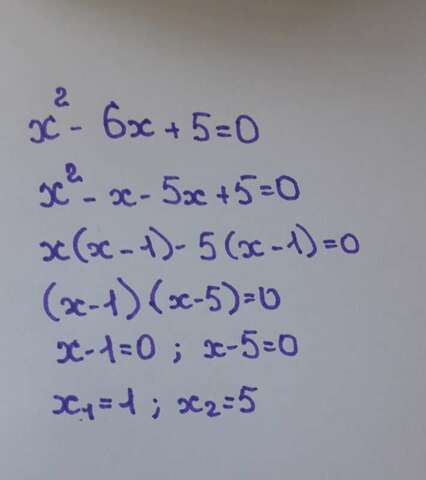 x² - 6x + 5 = 0
x² - x - 5x + 5 = 0
x(x - 1) - 5(x - 1) = 0
(x - 1)(x - 5) = 0
x - 1 = 0 ; x - 5 = 0
x₁ = 1 ; x₂ = 5